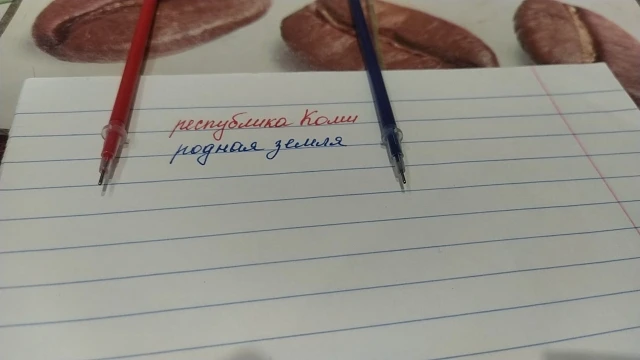 республика Коми
родная земля